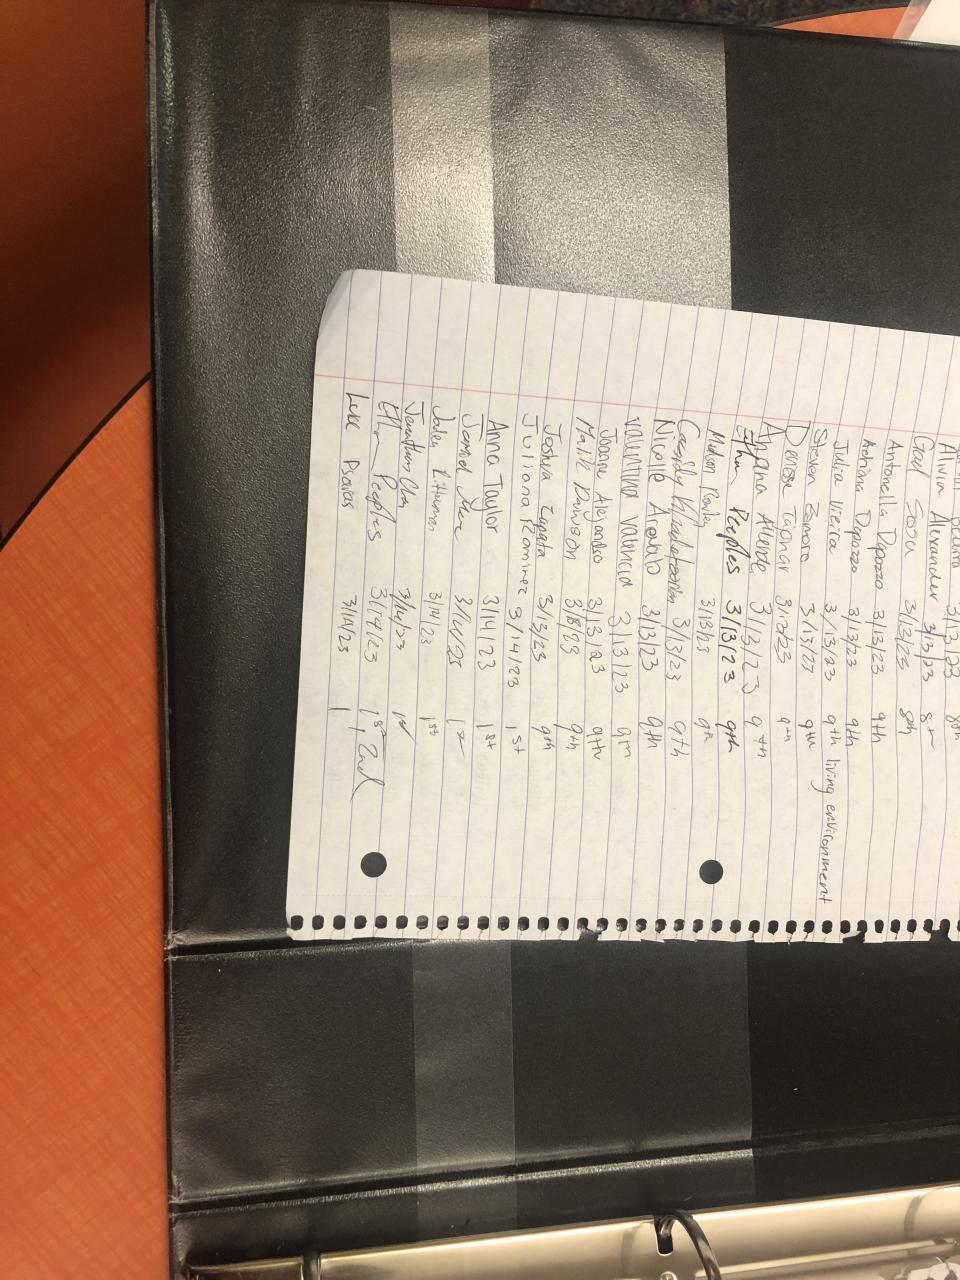 Alivia Alexander 3/13/23 8th
Gail Sosa 3/13/23 8th
Antonella Dipozzo 3/13/23 9th
Adriana Dipozzo 3/13/23 9th
Julia Vieira 3/13/23 9th living environment
Steven Zamora 3/13/23 9th
Denisse Tajonar 3/13/23 9th
Ariana Allende 3/13/23 9th
Ethan Peeples 3/13/23 9th
Madison 3/13/23 9th
Cassidy 3/13/23 9th
Nicolle Arevalo 3/13/23 9th
Valentina Valencia 3/13/23 9th
Joanne Alejandro 3/13/23 9th
Malik Dawson 3/8/23 9th
Joshua Zapata 3/13/23 9th
Juliana Ramirez 3/14/23 1st
Anna Taylor 3/14/23 1st
3/14/23 1st
Jaden Pittman 3/14/23 1st
Jonathan Chu 3/14/23 1st
Ethan Peeples 3/14/23 1st 2nd
Luke Psaras 3/14/23 1